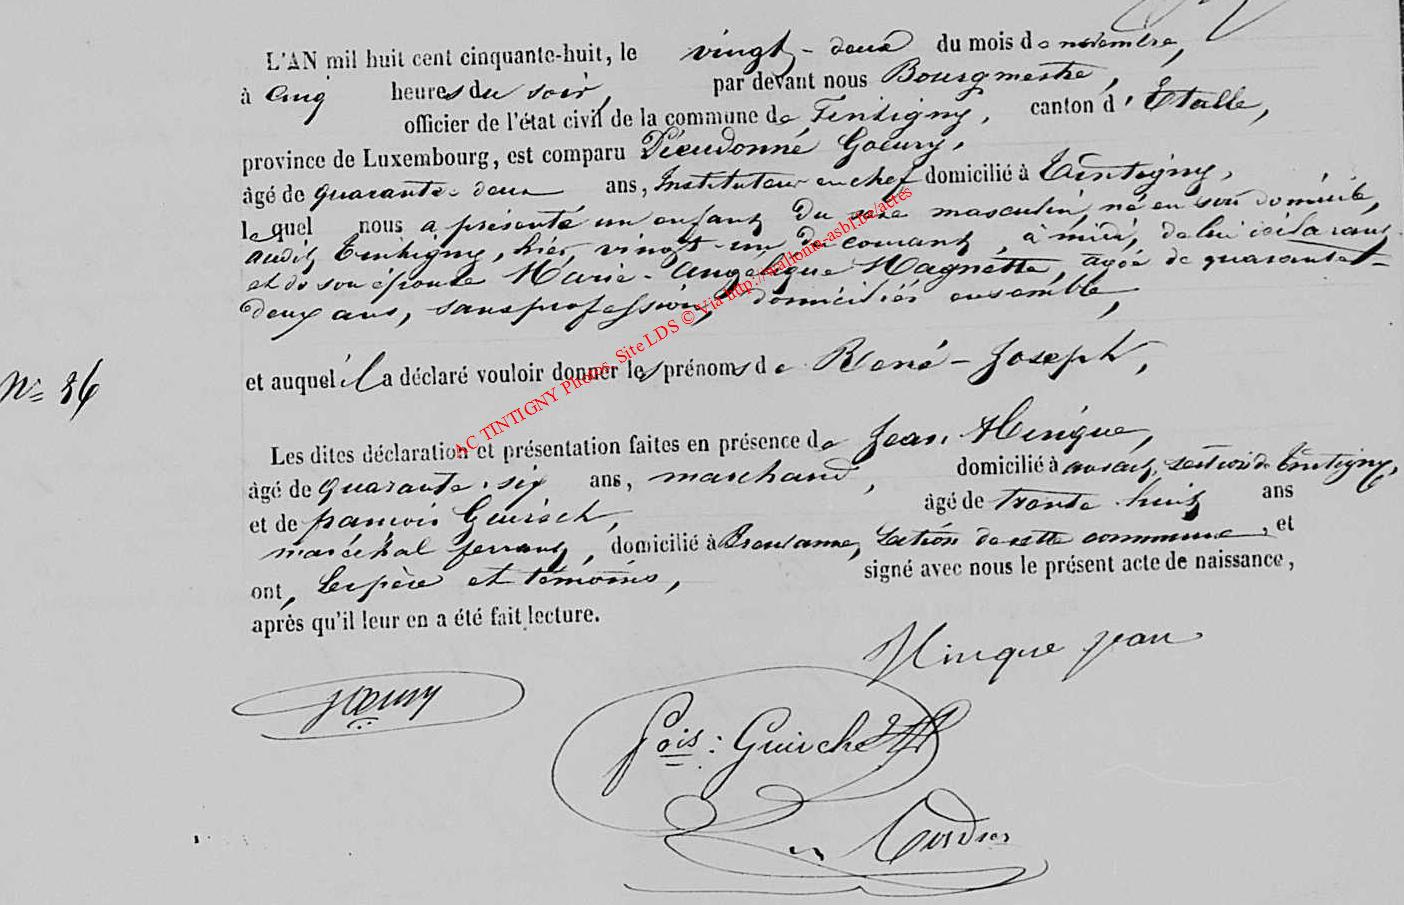 L'AN mil huit cent cinquante-huit, le vingt-deux du mois de novembre,
à cinq heures du soir, par devant nous Bourgmestre,
officier de l'état civil de la commune de Tintigny, canton d'Etalle,
province de Luxembourg, est comparu Dieudonné Goeury,
âgé de quarante-deux ans, Instituteur en chef domicilié à Tintigny,
lequel nous a présenté un enfant du sexe masculin, né en son domicile,
audit Tintigny, hier, vingt-un du courant, à midi, de lui déclarant
et de son épouse Marie-Angélique Magnette, agée de quarante-
deux ans, sans profession, domiciliés ensemble,
N° 36
et auquel il a déclaré vouloir donner les prénoms de René-Joseph,
Les dites déclaration et présentation faites en présence de Jean Hinque,
âgé de quarante-six ans, marchand, domicilié à ansart, section de Tintigny,
et de françois Guirsch, âgé de trente-huit ans
maréchal ferrant, domicilié à Breuvanne, section de cette commune, et
ont, les père et témoins, signé avec nous le présent acte de naissance,
après qu'il leur en a été fait lecture.
Hinque jean
Goeury
fois: Guirche
AC TINTIGNY Photos Site LDS © Via http://wallonia-asbl.be/actes